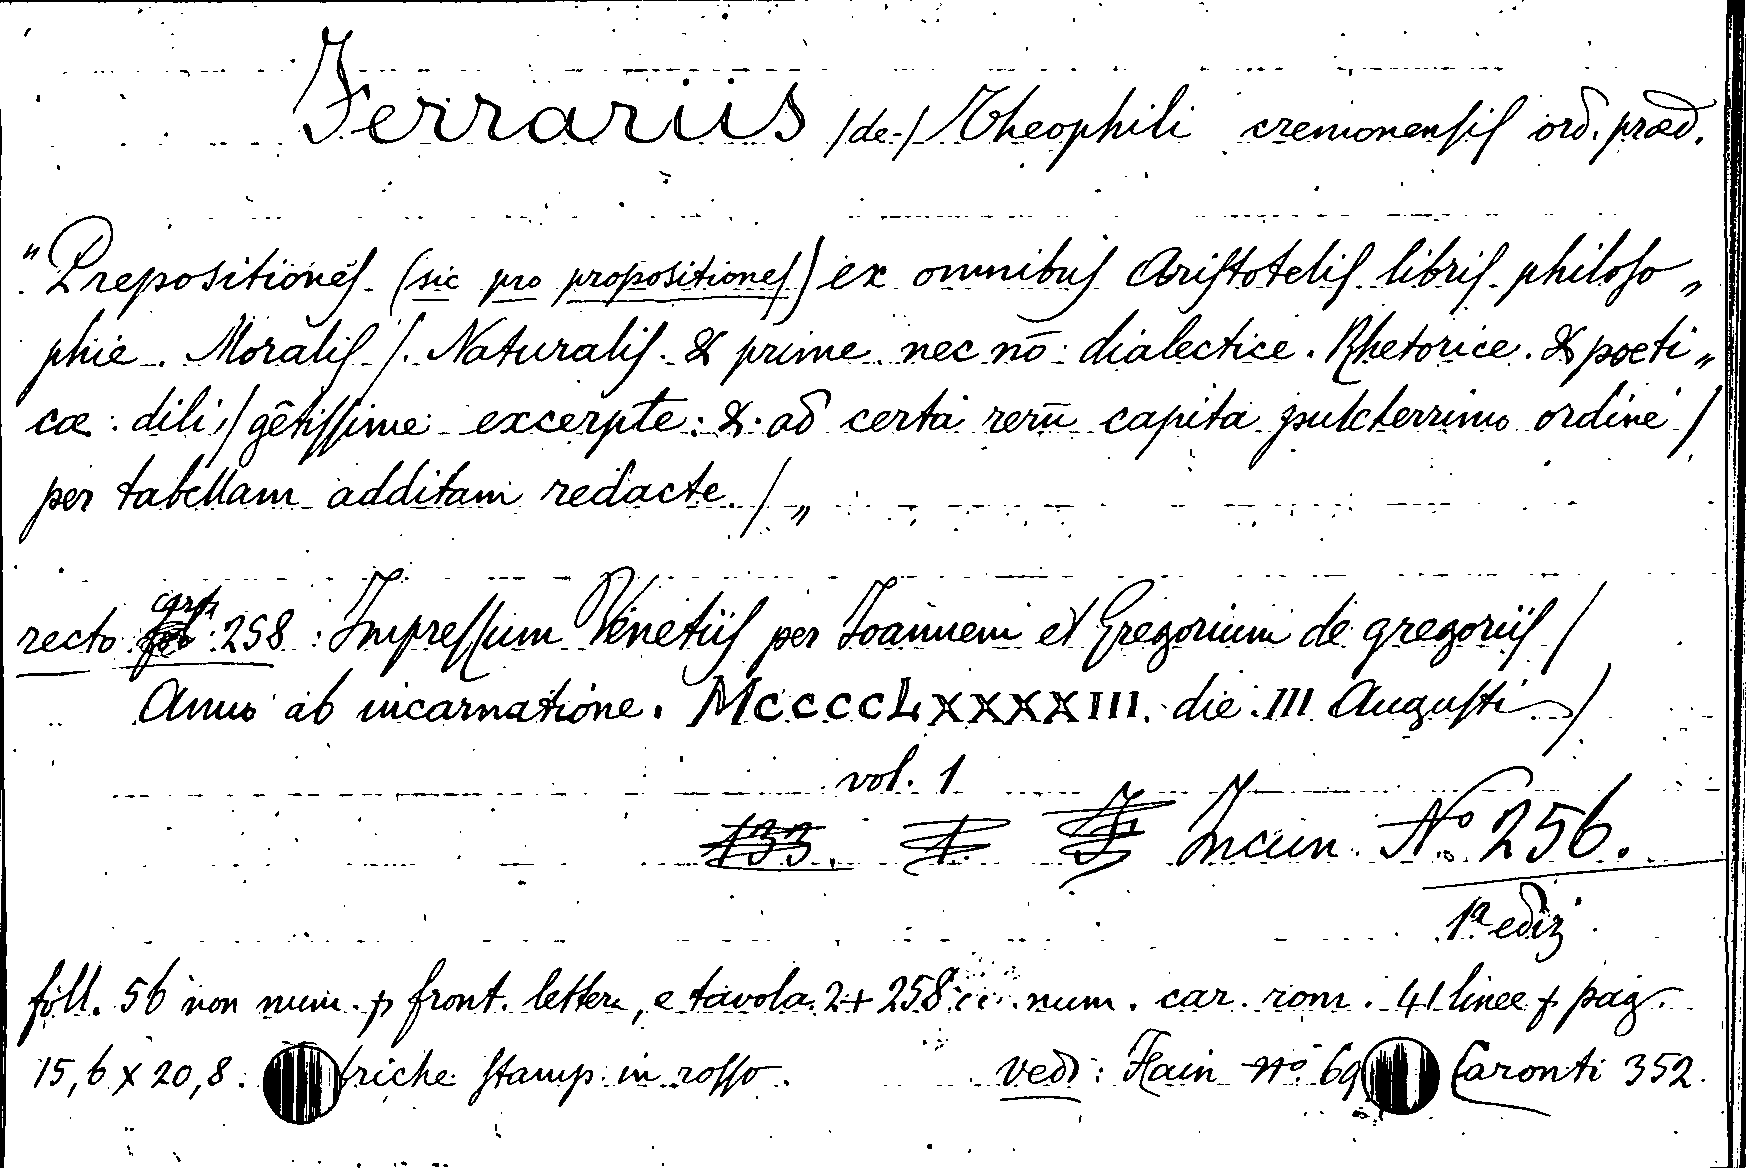 Ferrariis /de-/ Theophili cremonensis ord. præd.
"Prepositiones (sic pro propositiones) ex omnibus Aristotelis libris philoso„
phie. Moralis /. Naturalis. & prime nec nō dialectice. Rhetorice. & poeti„
cæ. dili/gētissime excerpte: & ad certa rerū capita pulcherrimo ordine /
per tabellam additam redacte. / „
recto cart. 258: Impressum Venetiis per Joannem et Gregorium de gregoriis /
Anno ab incarnatione. MCCCCLXXXXIII. die. III Augusti /
vol. 1
133. Incun. Nº 256.
1ª ediz.
foll. 56 non num. p front. lettera, e tavola 2+258 cc. num. car. rom. 41 linee p pag.
15,6 x 20,8. friche stamp. in rosso. vedi: Hain nº 69 Caronti 352.